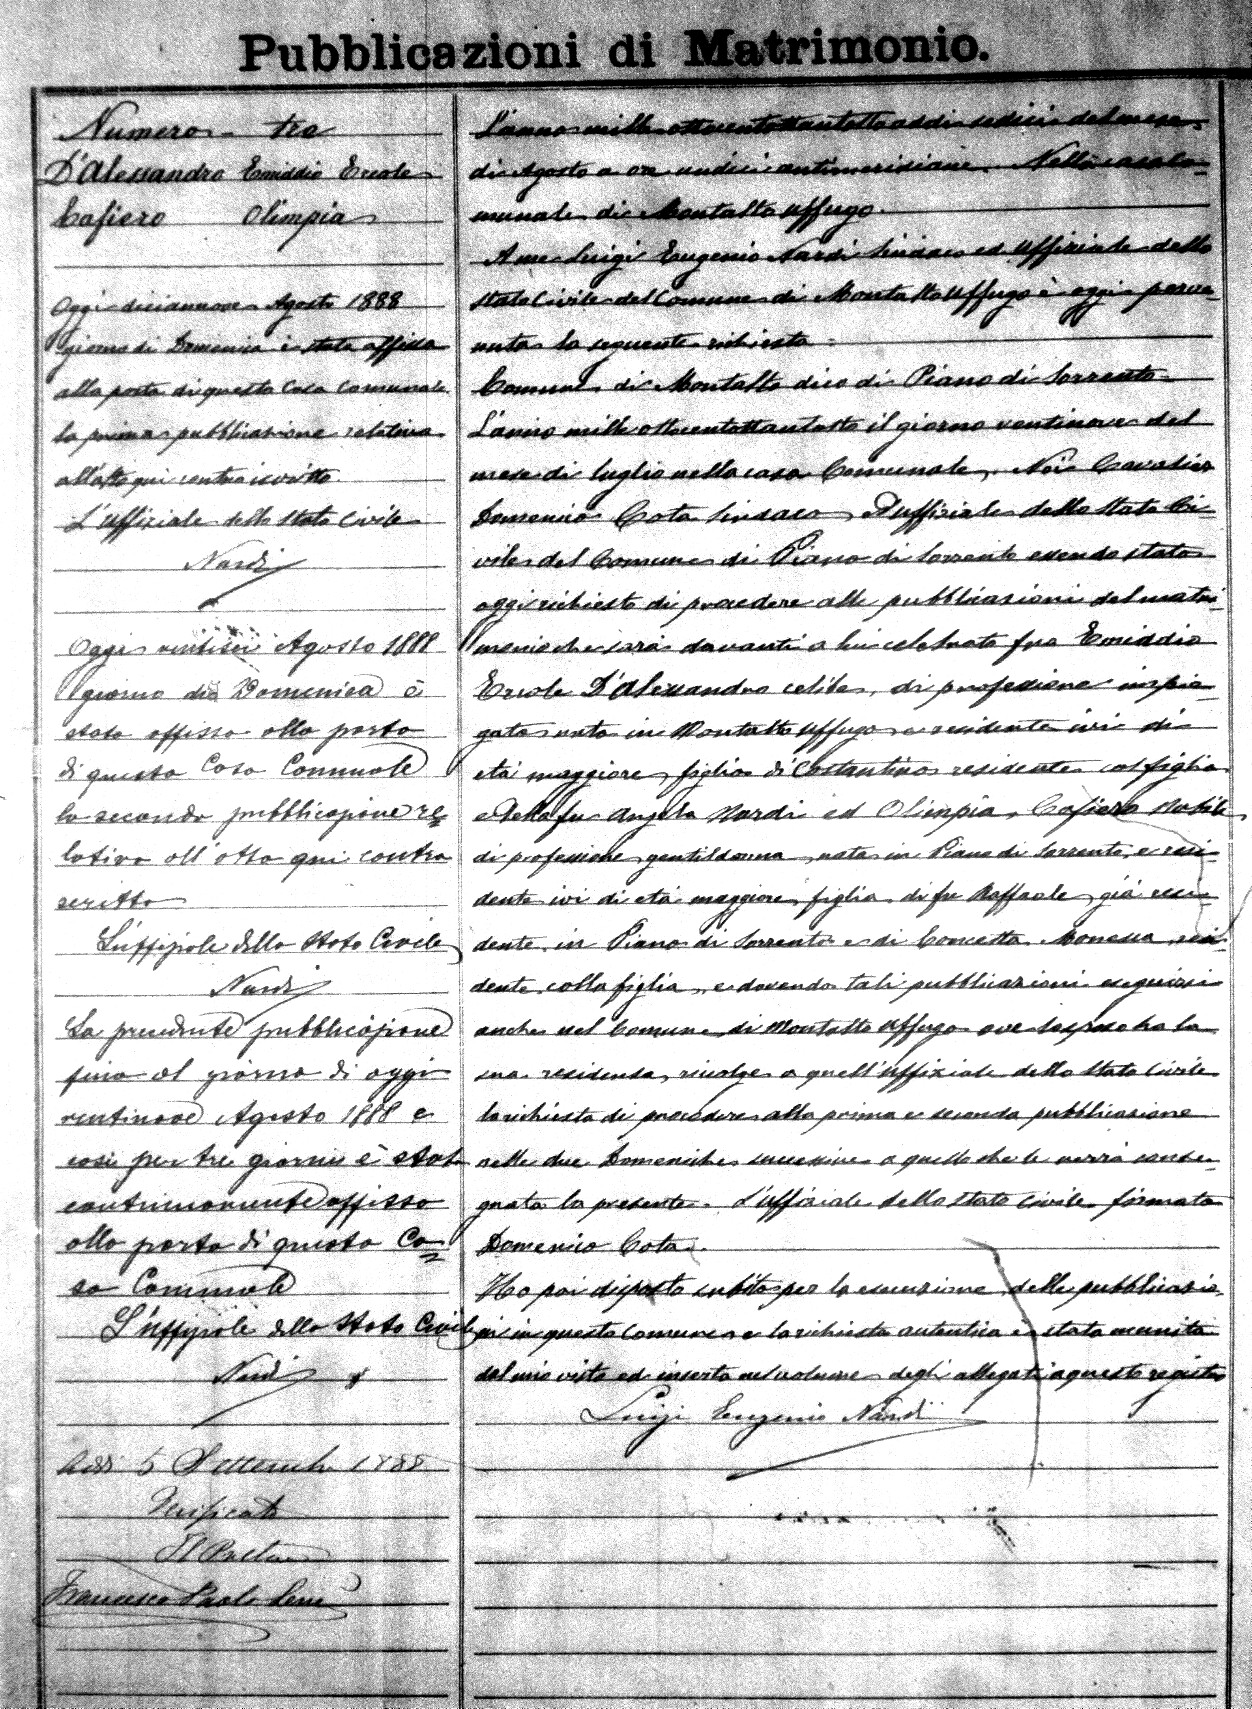 Pubblicazioni di Matrimonio.
Numero tre
D'Alessandro Emiddio Ercole
Cafiero Olimpia
Oggi diciannove Agosto 1888
giorno di Domenica è stata affissa
alla porta di questa Casa Comunale
la prima pubblicazione relativa
all'atto qui contro iscritto
L'Uffiziale dello Stato Civile
Nardi
Oggi ventisei Agosto 1888
giorno di Domenica è
stata affissa alla porta
di questa Casa Comunale
la seconda pubblicazione re=
lativa all'atto qui contro
scritto
L'uffiziale dello Stato Civile
Nardi
La precedente pubblicazione
fino al giorno di oggi
ventinove Agosto 1888 e
così per tre giorni è stata
continuamente affissa
alla porta di questa Ca=
sa Comunale
L'uffiziale dello Stato Civile
Nardi
Addì 5 Settembre 1888
Verificato
Il Pretore
Francesco Paolo
L'anno mille ottocentottantotto addì sedici del mese
di Agosto a ore undici antimeridiane. Nella casa Co=
munale di Montalto Uffugo.
A me Luigi Eugenio Nardi Sindaco ed Uffiziale dello
Stato Civile del Comune di Montalto Uffugo è oggi perve=
nuta la seguente richiesta
Comune di Montalto dico di Piano di Sorrento
L'anno mille ottocentottantotto il giorno ventinove del
mese di luglio nella casa Comunale, Noi Cavalier
Domenico Cota Sindaco ed uffiziale dello Stato Ci=
vile del Comune di Piano di Sorrento essendo stato
oggi richiesto di procedere alle pubblicazioni del matri=
monio che sarà davanti a lui celebrato fra Emiddio
Ercole D'Alessandro celibe, di professione impie=
gato nato in Montalto Uffugo e residente ivi di
età maggiore, figlio di Costantino residente col figlio
e della fu Angela Nardi ed Olimpia Cafiero Nubile
di professione gentildonna nata in Piano di Sorrento, e resi=
dente ivi di età maggiore, figlia di fu Raffaele già resi=
dente in Piano di Sorrento e di Concetta Monessa resi=
dente colla figlia, e dovendo tali pubblicazioni eseguirsi
anche nel Comune di Montalto Uffugo ove lo sposo ha la
sua residenza, rivolge a quell'Uffiziale dello Stato Civile
la richiesta di procedere alla prima e seconda pubblicazione
nelle due Domeniche successive a quello che le verrà conse=
gnata la presente. L'uffiziale dello Stato Civile firmato
Domenico Cota.
Ho poi disposto subito per la esecuzione delle pubblicazio=
ni in questo Comune e la richiesta autentica è stata munita
del mio visto ed inserta nel volume degli allegati a questo registro
Luigi Eugenio Nardi